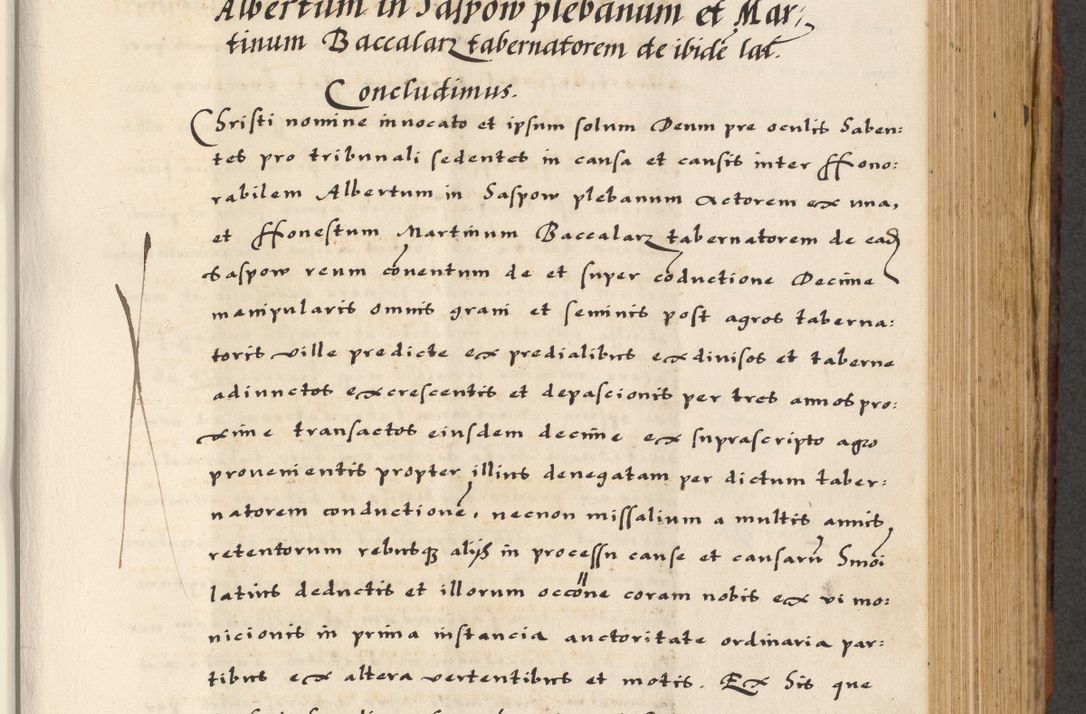 Albertum in Saspow plebanum et Mar⸗
tinum Baccalarz tabernatorem de ibidē lat.
Concludimus.
Christi nomine invocato et ipsum solum Deum pre oculis haben⸗
tes pro tribunali sedentes in causa et causis inter Hono⸗
rabilem Albertum in Saspow plebanum Actorem ex una,
et Honestum Martinum Baccalarz tabernatorem de ead
Saspow reum cōventum de et super cōductione Decime
manipularis omnis grani et seminis post agros taberna⸗
toris ville predicte ex predialibus ex divisos et taberne
adiunctos excrescentis et depascionis per tres annos pro⸗
xime transactos eiusdem decime ex suprascripto agro
provenientis propter illius denegatam per dictum taber⸗
natorem conductionē, necnon missalium a multis annis
retentorum rebusqꝫ alijs in processu cause et causarū hmōi
latius deductis et illorum occōne coram nobis ex vi mo⸗
nicionis in prima instancia auctoritate ordinaria par⸗
tibus ex altera vertentibus et motis. Ex his que